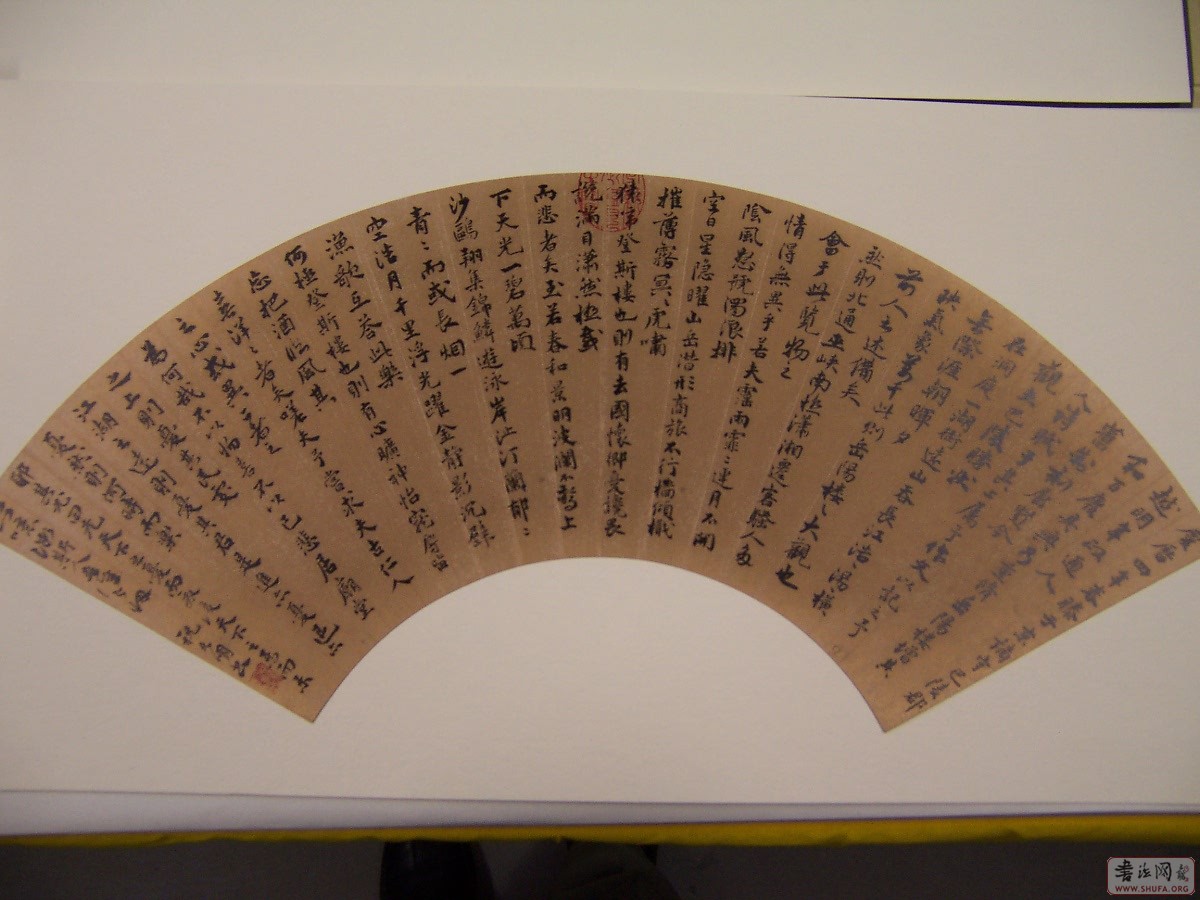 慶曆四年春滕子京謫守巴陵郡
越明年政通人
和百廢具興乃重修岳陽樓增其
舊制刻唐賢今
人詩賦于其上屬予作文以記之予
觀夫巴陵勝狀
在洞庭一湖銜遠山吞長江浩〻湯〻橫
無際涯朝暉夕
映氣象萬千此則岳陽樓之大觀也
前人之述備矣
然則北通巫峽南極瀟湘遷客騷人多
會于此覽物之
情得無異乎若夫霪雨霏〻連月不開
陰風怒號濁浪排
空日星隱曜山岳潛形商旅不行檣傾楫
摧薄霧冥〻虎嘯
猿啼登斯樓也則有去國懷鄉憂讒畏
譏滿目瀟然極感
而悲者矣至若春和景明波瀾不驚上
下天光一碧萬頃
沙鷗翔集錦鱗遊泳岸芷汀蘭郁〻
青〻而或長烟一
空浩月千里浮光躍金靜影沉璧
漁歌互答此樂
何極登斯樓也則有心曠神怡寵辱皆
忘把酒臨風其
喜洋〻者矣嗟夫予嘗求夫古仁人
之心或異二者之
為何哉不以物喜不以己悲居廟堂
之上則憂其民處
江湖之遠則憂其君是進亦憂退亦
憂然則何時而樂
耶其必曰先天下之憂而憂後天下之樂而樂
乎噫微斯人吾誰與歸
祝允明書
書法网
WWW.SHUFA.ORG